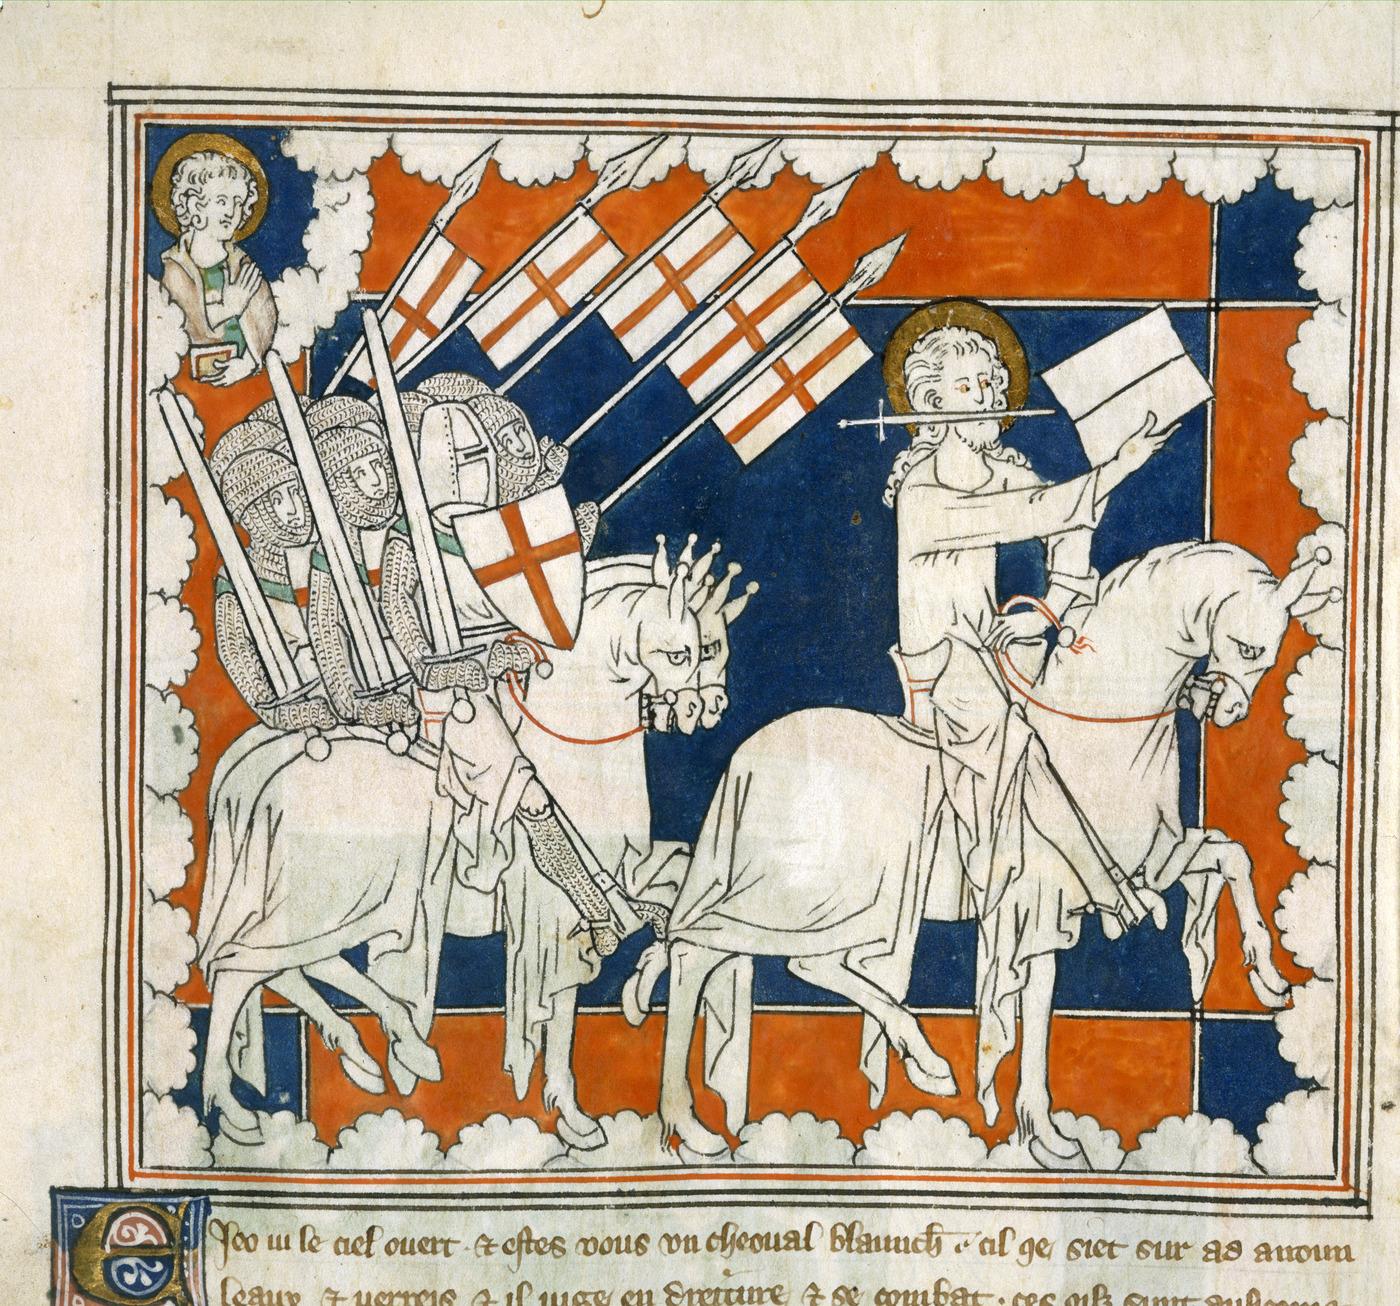 E Jeo ui le ciel ouert · & estes vous vn cheoual blaunch̄ · cil qe siet sur ad anoun
leaux & verreis & il iuge en dreiture & se combat · ces oilz sunt